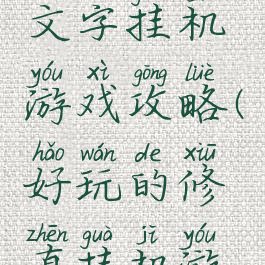 文字挂机
yóu xì gōng lüè
游戏攻略(
hǎo wán de xiū
好玩的修
zhēn guà jī yóu
真挂机游